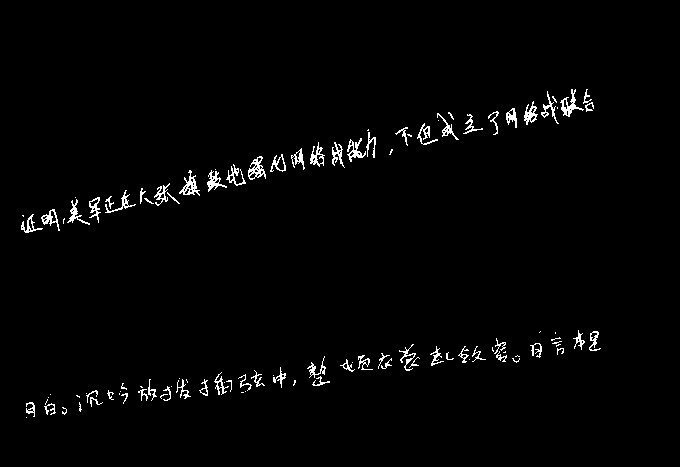 证明,美军正在大张旗鼓地强化网络战能力,不但成立了网络战联合
月白。沉吟放拨插弦中,整顿衣裳起敛容。自言本是